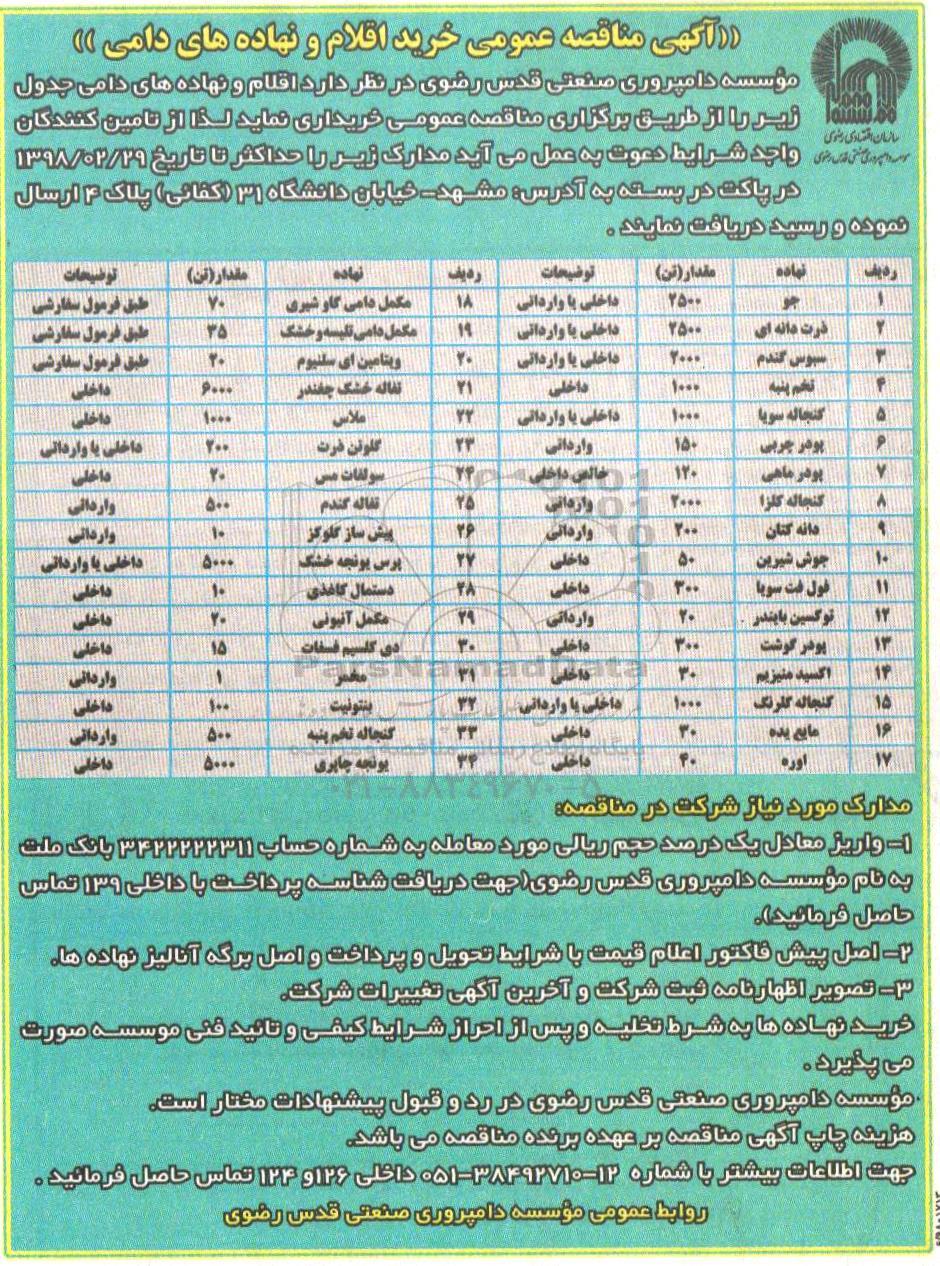 ((آگهی مناقصه عمومی خرید اقلام و نهاده های دامی ))
سازمان اقتصادی رضوی
موسسه دامپروری صنعتی قدس رضوی
مؤسسه دامپروری صنعتی قدس رضوی در نظر دارد اقلام و نهاده های دامی جدول
زیر را از طریق برگزاری مناقصه عمومی خریداری نماید لذا از تامین کنندگان
واجد شرایط دعوت به عمل می آید مدارک زیر را حداکثر تا تاریخ ۱۳۹۸/۰۲/۲۹
در پاکت در بسته به آدرس: مشهد- خیابان دانشگاه ۳۱ (کفائی) پلاک ۴ ارسال
نموده و رسید دریافت نمایند .
ردیف نهاده مقدار(تن) توضیحات ردیف نهاده مقدار(تن) توضیحات
۱ جو ۲۵۰۰ داخلی یا وارداتی ۱۸ مکمل دامی گاو شیری ۷۰ طبق فرمول سفارشی
۲ ذرت دانه ای ۲۵۰۰ داخلی یا وارداتی ۱۹ مکمل دامی تلیسه و خشک ۳۵ طبق فرمول سفارشی
۳ سبوس گندم ۲۰۰۰ داخلی یا وارداتی ۲۰ ویتامین ای سلنیوم ۲۰ طبق فرمول سفارشی
۴ تخم پنبه ۱۰۰۰ داخلی ۲۱ تفاله خشک چغندر ۶۰۰۰ داخلی
۵ کنجاله سویا ۱۰۰۰ داخلی یا وارداتی ۲۲ ملاس ۱۰۰۰ داخلی
۶ پودر چربی ۱۵۰ وارداتی ۲۳ گلوتن ذرت ۲۰۰ داخلی یا وارداتی
۷ پودر ماهی ۱۲۰ خالص داخلی ۲۴ سولفات مس ۲۰ داخلی
۸ کنجاله کلزا ۲۰۰۰ وارداتی ۲۵ تفاله گندم ۵۰۰ وارداتی
۹ دانه کتان ۲۰۰ وارداتی ۲۶ پیش ساز گلوکز ۱۰ وارداتی
۱۰ جوش شیرین ۵۰ داخلی ۲۷ پرس یونجه خشک ۵۰۰۰ داخلی یا وارداتی
۱۱ فول فت سویا ۳۰۰ داخلی ۲۸ دستمال کاغذی ۱۰ داخلی
۱۲ توکسین بایندر ۲۰ وارداتی ۲۹ مکمل آنیونی ۲۰ داخلی
۱۳ پودر گوشت ۳۰۰ داخلی ۳۰ دی کلسیم فسفات ۱۵ داخلی
۱۴ اکسید منیزیم ۳۰ داخلی ۳۱ مخمر ۱ وارداتی
۱۵ کنجاله گلرنگ ۱۰۰۰ داخلی یا وارداتی ۳۲ بنتونیت ۱۰۰ داخلی
۱۶ مایع یده ۳۰ داخلی ۳۳ کنجاله تخم پنبه ۵۰۰ وارداتی
۱۷ اوره ۴۰ داخلی ۳۴ یونجه چاپری ۵۰۰۰ داخلی
ParsNamadData
۰۲۱-۸۸۳۴۹۶۷۰-۵
مدارک مورد نیاز شرکت در مناقصه:
۱- واریز معادل یک درصد حجم ریالی مورد معامله به شماره حساب ۳۴۲۲۲۲۲۳۱۱ بانک ملت
به نام مؤسسه دامپروری قدس رضوی(جهت دریافت شناسه پرداخت با داخلی ۱۳۹ تماس
حاصل فرمائید).
۲- اصل پیش فاکتور اعلام قیمت با شرایط تحویل و پرداخت و اصل برگه آنالیز نهاده ها.
۳- تصویر اظهارنامه ثبت شرکت و آخرین آگهی تغییرات شرکت.
خرید نهاده ها به شرط تخلیه و پس از احراز شرایط کیفی و تائید فنی موسسه صورت
می پذیرد .
مؤسسه دامپروری صنعتی قدس رضوی در رد و قبول پیشنهادات مختار است.
هزینه چاپ آگهی مناقصه بر عهده برنده مناقصه می باشد.
جهت اطلاعات بیشتر با شماره ۱۲-۰۵۱-۳۸۴۹۲۷۱۰ داخلی ۱۲۶و ۱۲۴ تماس حاصل فرمائید .
روابط عمومی مؤسسه دامپروری صنعتی قدس رضوی